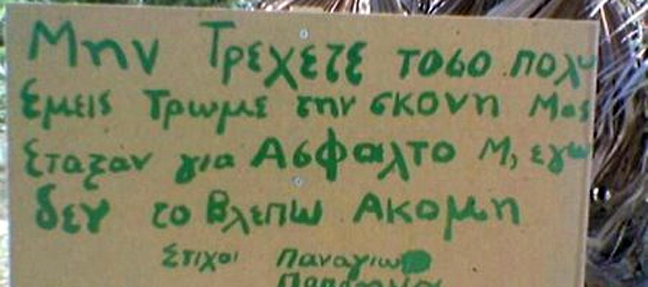 Μην Τρεχετε τοσο πολυ
Εμεις Τρωμε την σκονη Μας
Εταξαν για Ασφαλτο Μ, εγω
δεν το Βλεπω Ακομη
Στιχοι